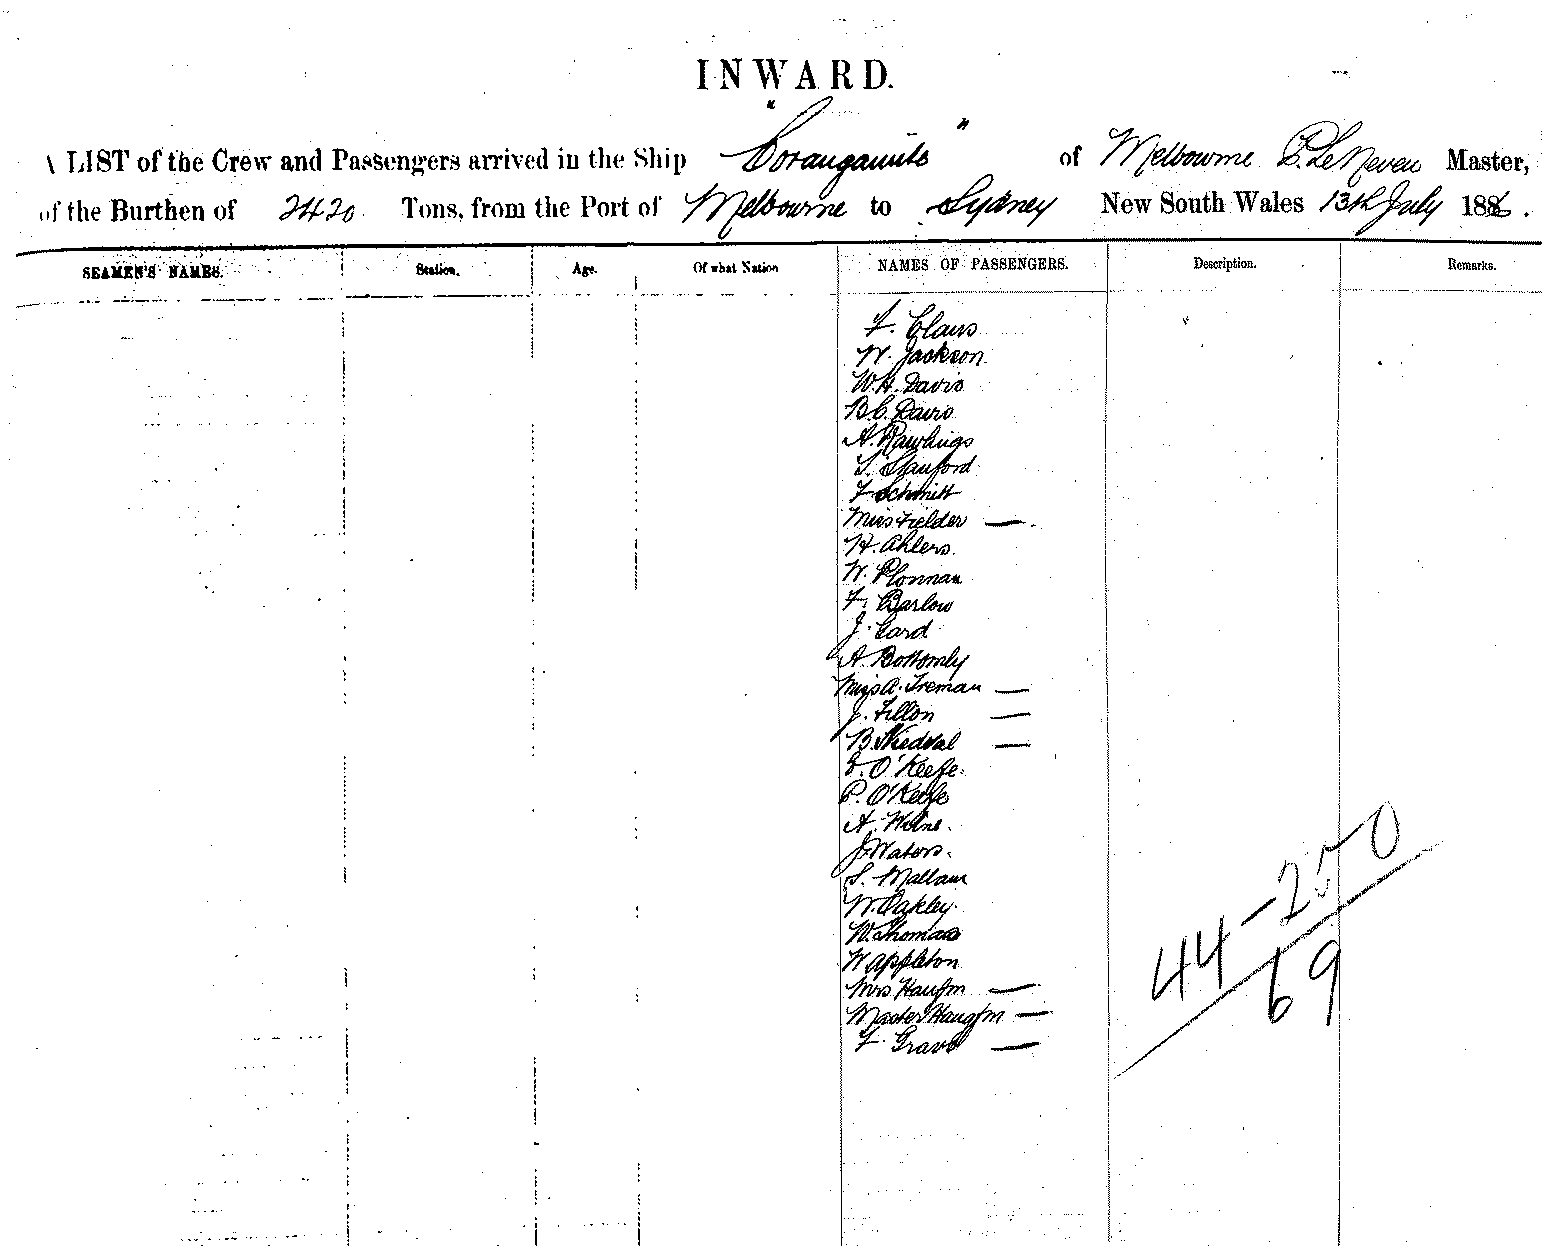 INWARD.
LIST of the Crew and Passengers arrived in the Ship "Corangamite" of Melbourne P. Le Neveu Master,
of the Burthen of 2420 Tons, from the Port of Melbourne to Sydney New South Wales 13th July 1886.
SEAMEN'S NAMES. Station. Age. Of what Nation NAMES OF PASSENGERS. Description. Remarks.
F. Claus
W. Jackson
W.H. Davis
B.C. Davis
A. Rawlings
S. Stanford
F Schmitt
Miss Fielder —
H. Ahlers
W. Plonnan
F. Barlow
J. Card
A Bottomly
Miss A. Freman —
J. Fillon —
B. —
E. O'Keefe
P. O'Keefe
A. Milne
J Waters
S. Mallam
W. Oakley
W. Thomas
W Appleton
Mrs —
Master —
F. —
44-250
69